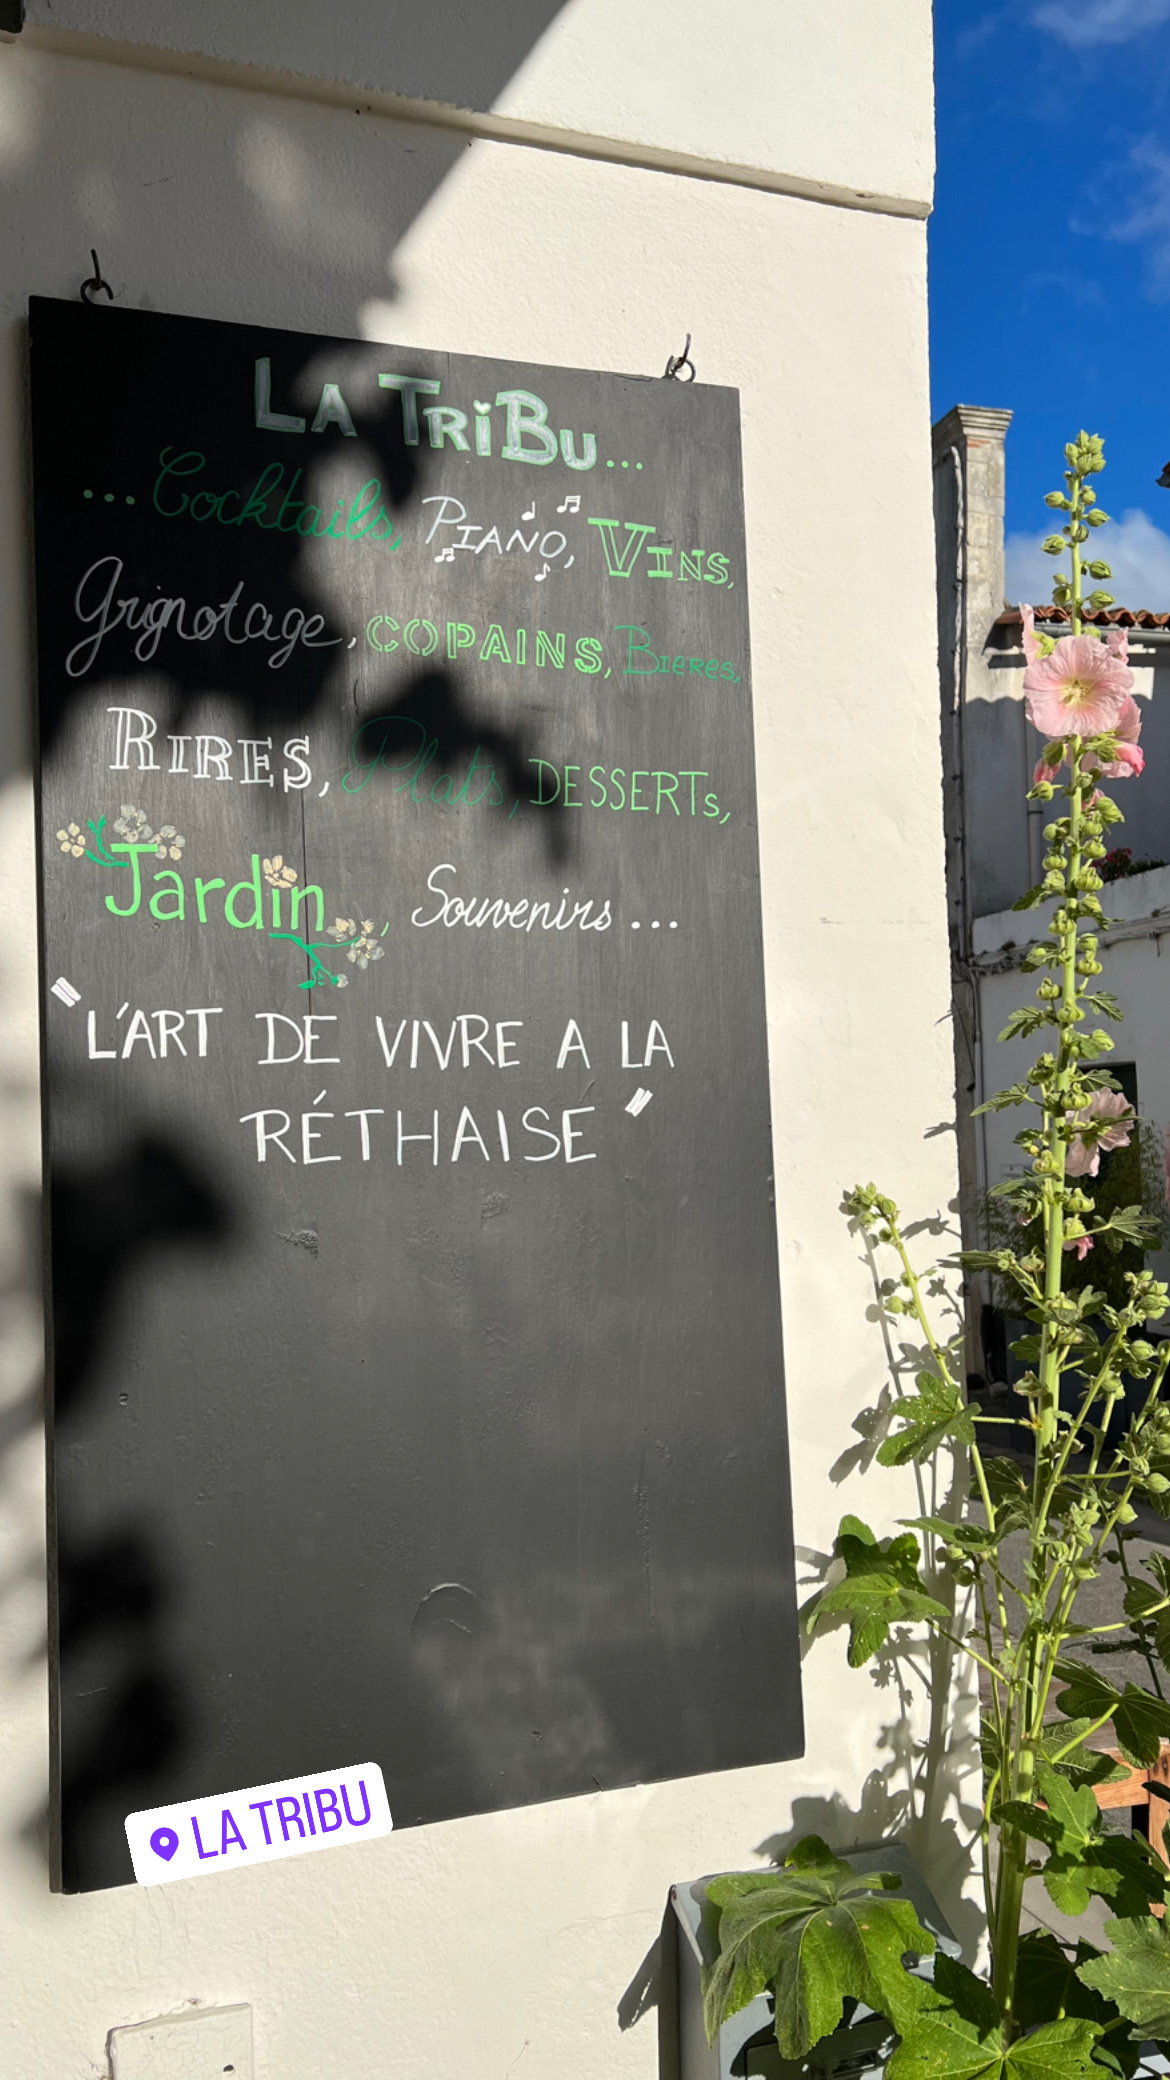 LA TRiBU...
...Cocktails, PIANO, VINS,
Grignotage, COPAINS, BIERES,
RIRES, Plats, DESSERTs,
Jardin, Souvenirs...
"L'ART DE VIVRE A LA
RÉTHAISE"
LA TRIBU